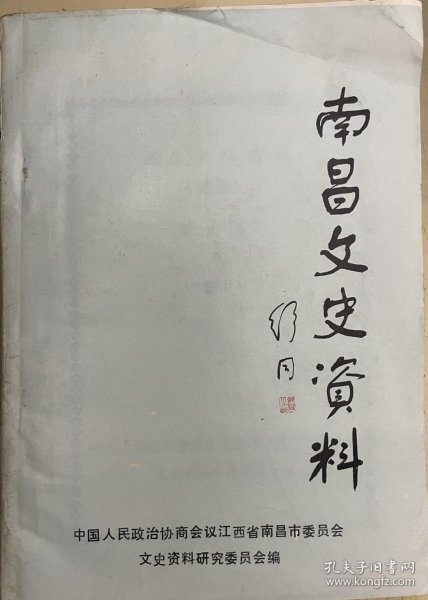 南昌文史資料
舒同
中国人民政治协商会议江西省南昌市委员会
文史资料研究委员会编
孔夫子旧书网
www.kongfz.com